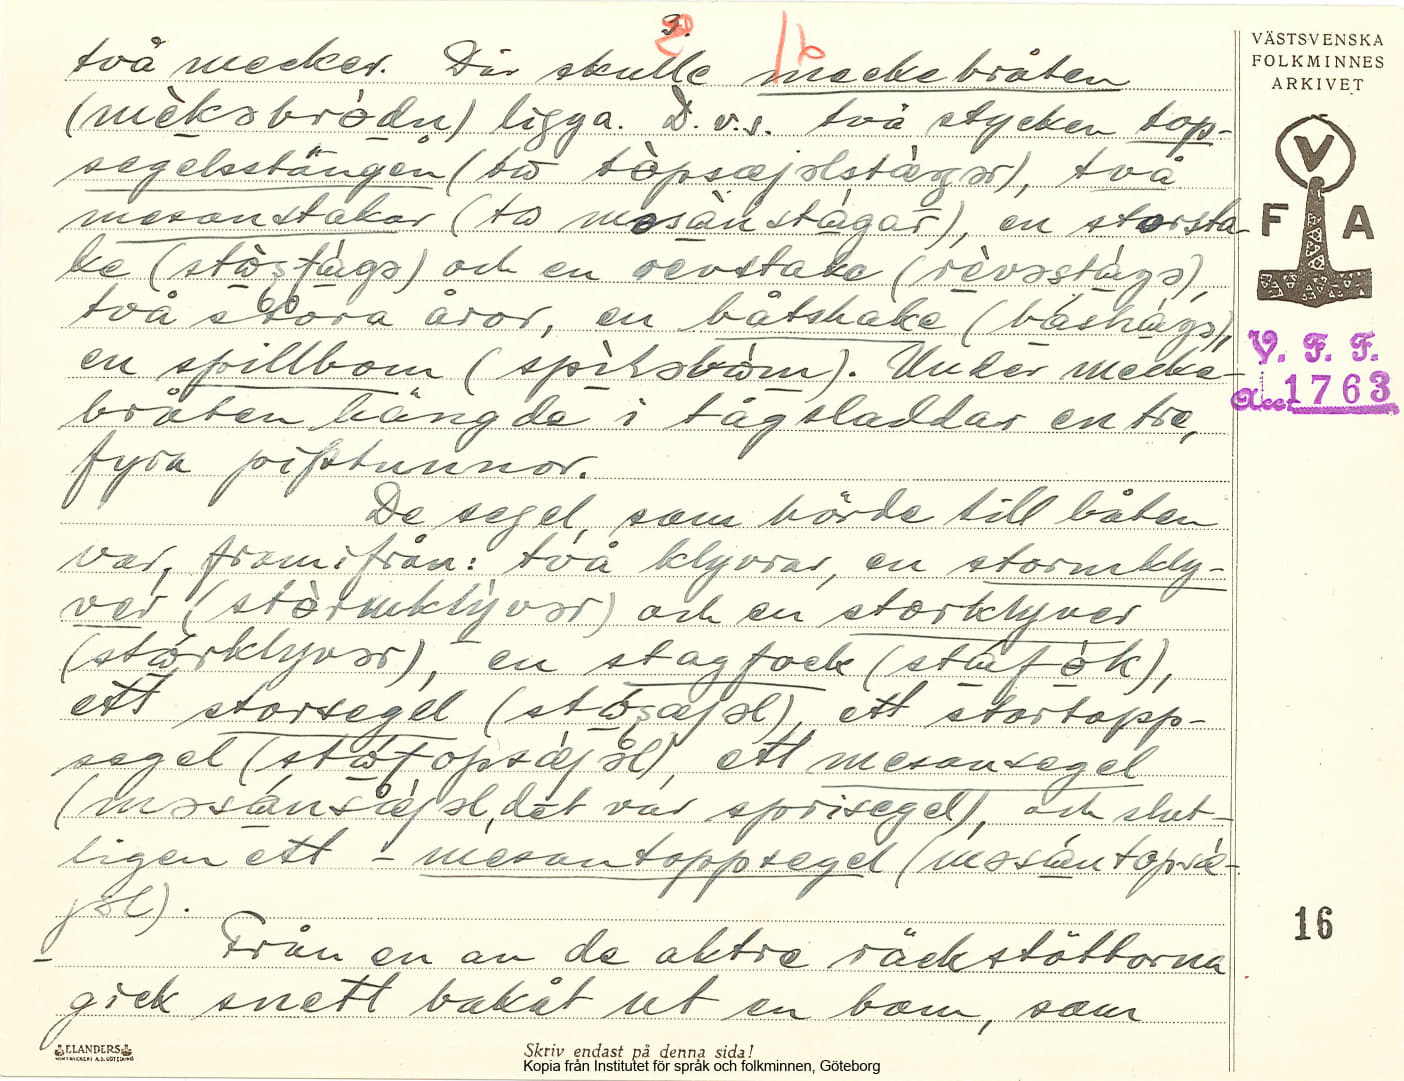 2.
16
två mecker. Där skulle meckebråten
(mèksbròdn) ligga. D.v.s. två stycken top-
segelsstänger (tω tòpsæjəlstæŋər), två
mesanstakar (tω məsànstágar), en storsta-
ke (stὼʂtágə) och en revstake (rèvəʂtágə),
två stora åror, en båtshake (båshágə),
en spillbom (spìləbωm). Under mecke-
bråten hängde i tågsladdar en tre,
fyra piptunnor.
De segel, som hörde till båten
var, framifrån: två klyvrar, en stormkly-
ver (stòrmklývər) och en storklyver
(stὼrklyvər), en stagfock (stáfòk),
ett storsegel (stὼʂæjəl), ett stortopp-
segel (stὼʈopsæjəl), ett mesansegel
(məsánsæjəl, det var sprisegel), och slut-
ligen ett - mesantoppsegel (məsántopsæ-
jəl).
Från en av de aktre räckstöttorna
gick snett bakåt ut en bom, som
VÄSTSVENSKA
FOLKMINNES
ARKIVET
V
F A
V. F. F.
Acc. 1763
16
ELANDERS
BOKTRYCKERI A.B. GÖTEBORG
Skriv endast på denna sida!
Kopia från Institutet för språk och folkminnen, Göteborg